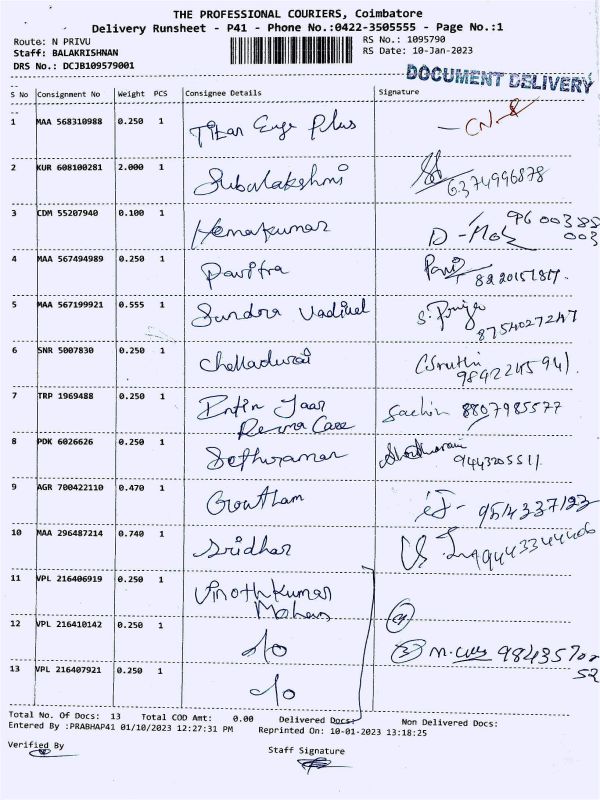 THE PROFESSIONAL COURIERS, Coimbatore
Delivery Runsheet - P41 - Phone No.:0422-3505555 - Page No.:1
Route: N PRIVU
RS No.: 1095790
Staff: BALAKRISHNAN
RS Date: 10-Jan-2023
DRS No.: DCJB109579001
DOCUMENT DELIVERY
S No Consignment No Weight PCS Consignee Details Signature
1 MAA 568310988 0.250 1 Titan Eye Plus - CN.
2 KUR 608100281 2.000 1 Subalakshmi 6374996878
3 CDM 55207940 0.100 1 Hemakumar D - 96 00385
003
4 MAA 567494989 0.250 1 Pavitra Pavi
5 MAA 567199921 0.555 1 Sundra Vadivel S. Priya
8754027247
6 SNR 5007830 0.250 1 Chelladurai Sruthi
9892245941.
7 TRP 1969488 0.250 1 Jaar Sachin 8807985577
Derma Care
8 PDK 6026626 0.250 1 Sethuraman
9443205511.
9 AGR 700422110 0.470 1 Gowtham
10 MAA 296487214 0.740 1 Sridhar
11 VPL 216406919 0.250 1 Vinothkumar
Mohan
12 VPL 216410142 0.250 1
3 98435702
52
13 VPL 216407921 0.250 1
Total No. Of Docs: 13 Total COD Amt: 0.00 Delivered Docs: Non Delivered Docs:
Entered By :PRABHAP41 01/10/2023 12:27:31 PM Reprinted On: 10-01-2023 13:18:25
Verified By
Staff Signature